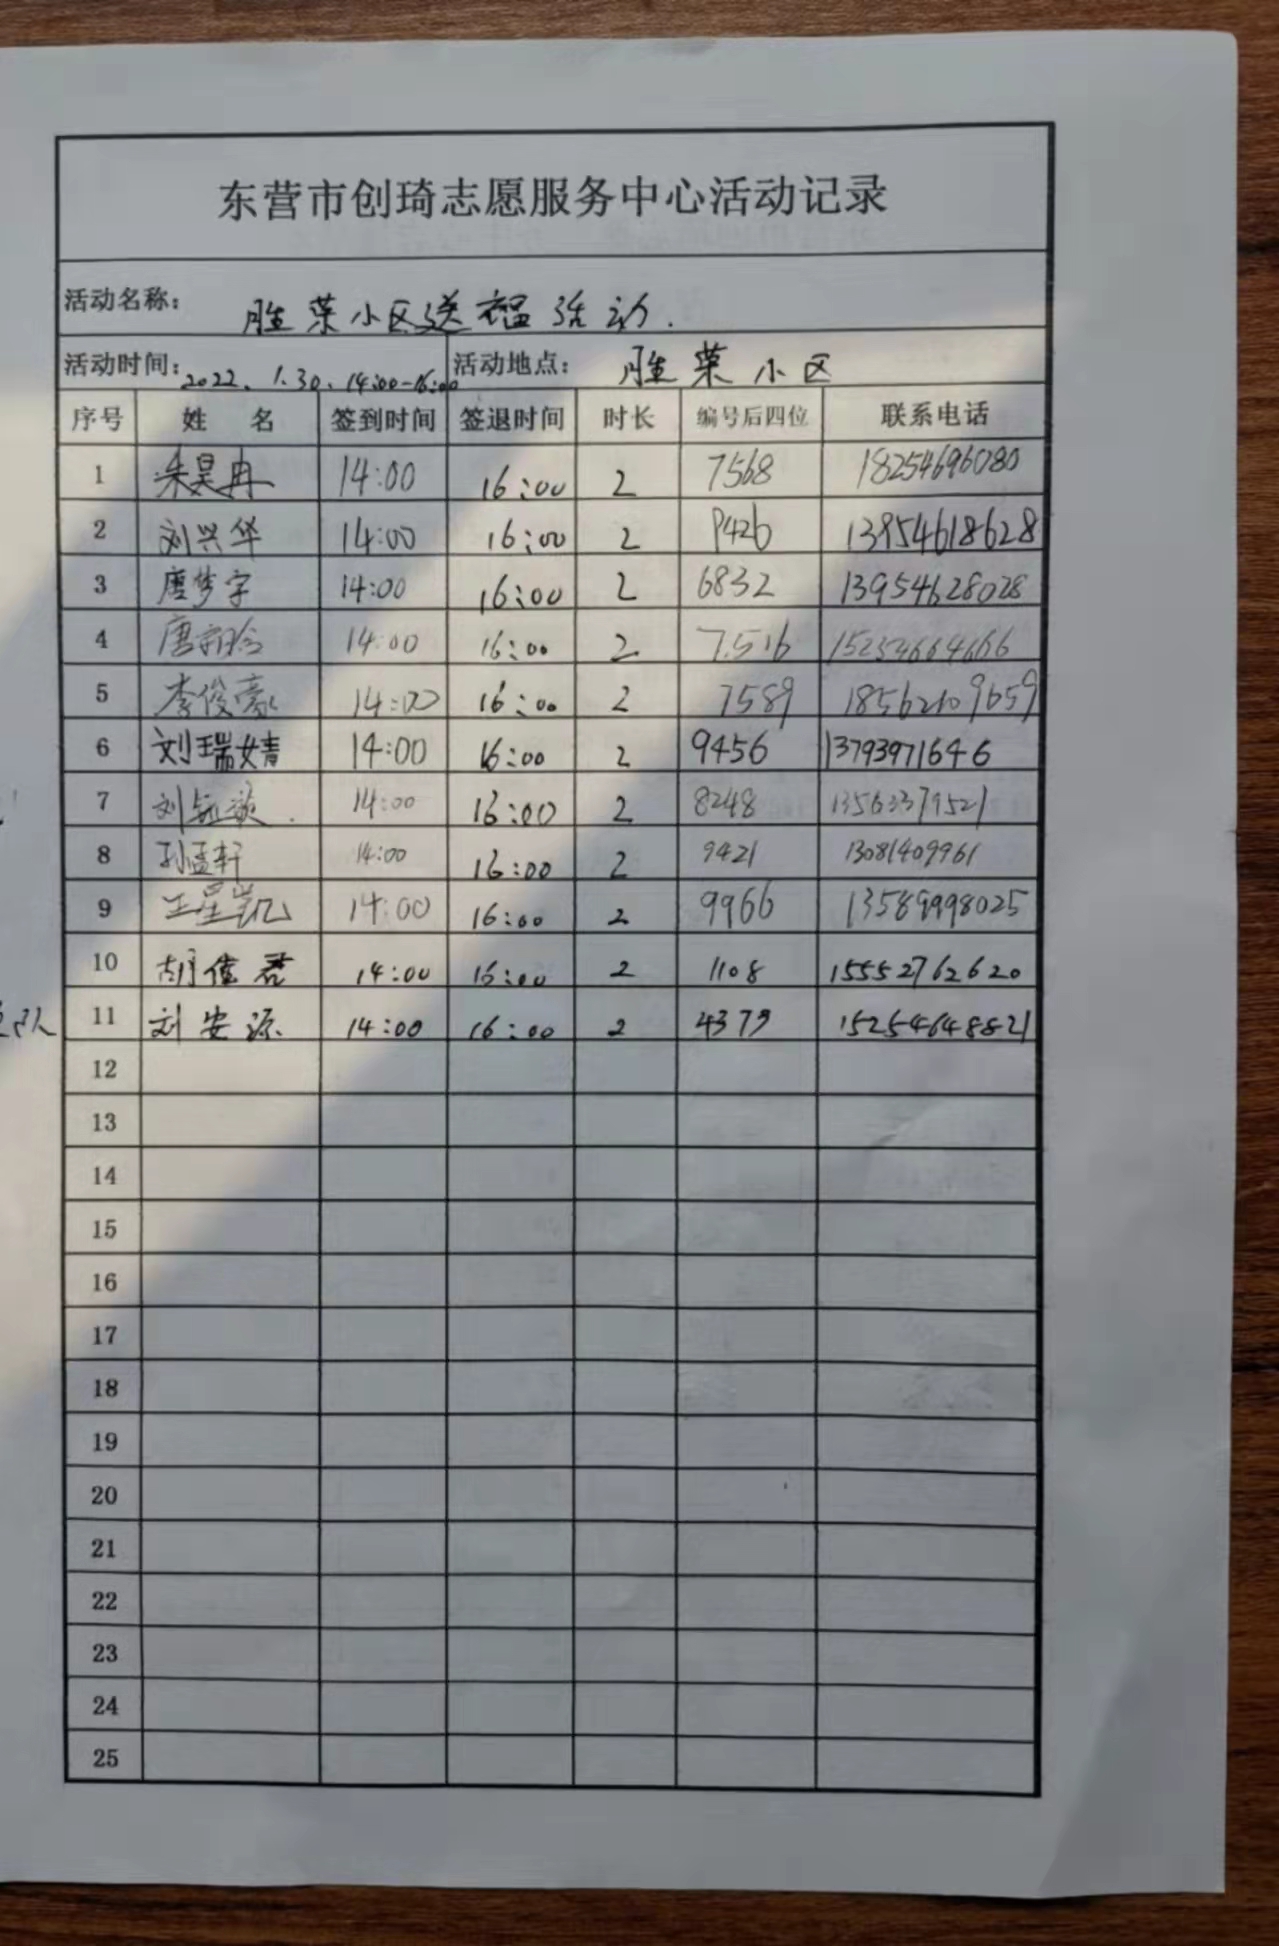 东营市创琦志愿服务中心活动记录
活动名称： 胜荣小区送福活动.
活动时间：2022.1.30.14:00-16:00 活动地点： 胜荣小区
序号 姓 名 签到时间 签退时间 时长 编号后四位 联系电话
1 朱昊冉 14:00 16:00 2 7568 18254696080
2 刘兴华 14:00 16:00 2 9426 13954618628
3 唐梦宇 14:00 16:00 2 6832 13954628028
4 14:00 16:00 2 7516
5 李俊豪 14:00 16:00 2 7589 18562109659
6 刘瑞婧 14:00 16:00 2 9456 13793971646
7 14:00 16:00 2 8248 13563379521
8 孙孟轩 14:00 16:00 2 9421 13081409961
9 王星凯 14:00 16:00 2 9966 13589998025
10 14:00 16:00 2 1108 15552762620
11 刘安源 14:00 16:00 2 4379 15254648821
12
13
14
15
16
17
18
19
20
21
22
23
24
25